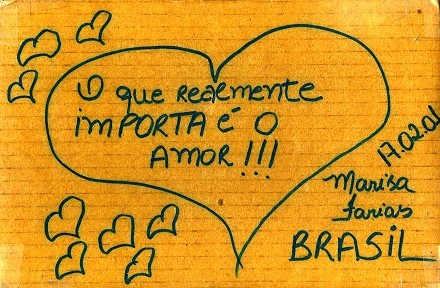 O que realmente
imPORTA É O
AMOR!!!
17.02.01
Marisa
Farias
BRASIL